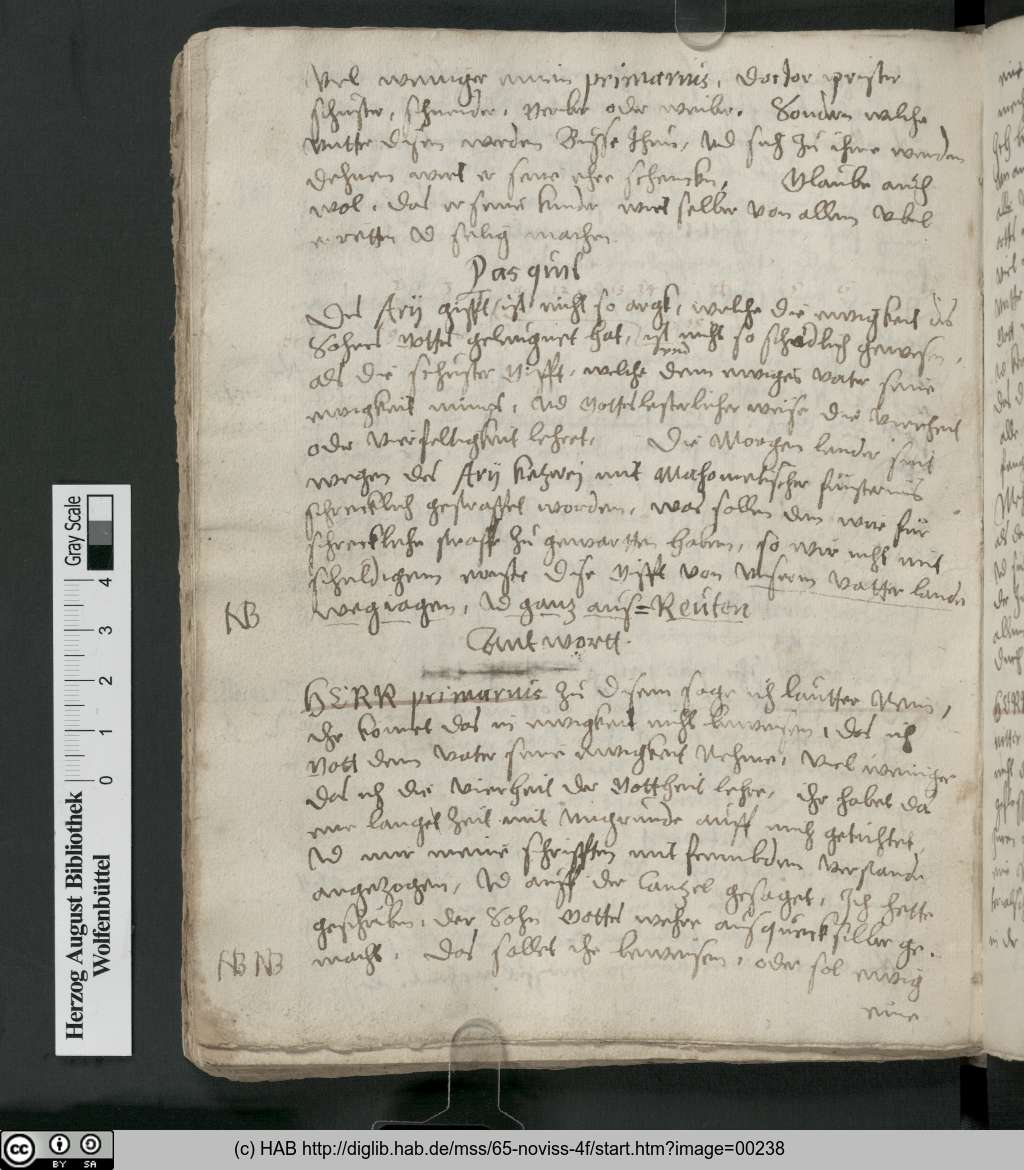 Viel weniger einen primarius, Doctor priester
schuster, schneider, Gerber oder weiber. Sondern welche
unter disen werden Busse thun, Vd sich zu ihme wenden
dehnen wirt er seine ehre schencken, Glaube auch
wol, das er seine kinder wirt selber von allem vbel
erretten Vd selig machen
Pasquil
Des Arij gifft/ist nicht so argk, welche die ewigkeit des
Sohnes Gottes geleugnet hat, ist nicht so schedlich gewesen,
als die schuster Gifft, welche dem ewigen vater seine
ewigkeit nimpt, Vd Gotteslesterlicher weise die Vierheit
oder Vierfeltigkeit lehret, Die Morgen lander sint
wegen des Arij ketzerei mit Mahometischer finsternüs
schrecklich gestraffet worden, was sollen den wir für
schreckliche straffe zu gewartten haben, so wir nicht mit
schuldigem dise Gifft von Unserm vatter lande
wegiagen, Vd gantz aus=Reuten
NB
Antwortt.
HERR primarius zu disem sage ich lautter Nein,
ihr konnet das in ewigkeit nicht beweisen, das ich
Gott dem vater seine ewigkeit Nehme, viel weiniger
das ich die Vierheit der Gottheit lehre, ihr habet da
eine lange Zeit mit Ungrunde auff mich getichtet,
Vd mir meine schrifften mit frembden verstande
angezogen, Vd auff der Cantzel gesaget, Ich hette
geschriben, der Sohn Gottes wehre aus quecksilber ge-
NB NB
macht. Das sollet ihr beweisen, oder sol ewig
eine
Gray Scale
0 1 2 3 4
Herzog August Bibliothek
Wolfenbüttel
cc BY SA
(c) HAB http://diglib.hab.de/mss/65-noviss-4f/start.htm?image=00238